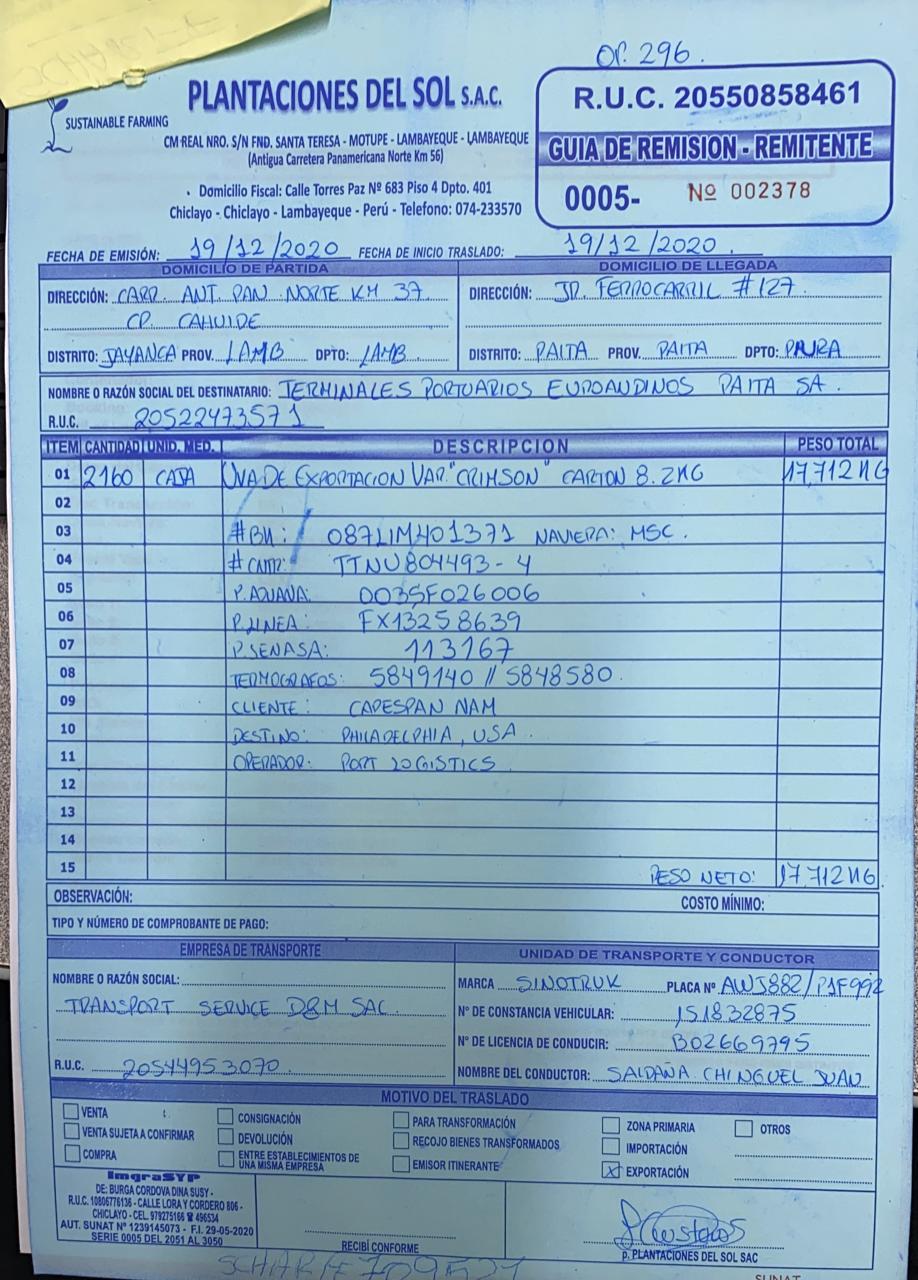 OP. 296.
PLANTACIONES DEL SOL S.A.C.
SUSTAINABLE FARMING
CM REAL NRO. S/N FND. SANTA TERESA - MOTUPE - LAMBAYEQUE - LAMBAYEQUE
(Antigua Carretera Panamericana Norte Km 56)
Domicilio Fiscal: Calle Torres Paz Nº 683 Piso 4 Dpto. 401
Chiclayo - Chiclayo - Lambayeque - Perú - Telefono: 074-233570
R.U.C. 20550858461
GUIA DE REMISION - REMITENTE
0005- Nº 002378
FECHA DE EMISIÓN: 19/12/2020 FECHA DE INICIO TRASLADO: 19/12/2020
DOMICILIO DE PARTIDA
DIRECCIÓN: CARR. ANT. PAN. NORTE KM 37
CP. CAHUIDE
DISTRITO: JAYANCA PROV. LAMB DPTO: LAMB
DOMICILIO DE LLEGADA
DIRECCIÓN: JR. FERROCARRIL #127
DISTRITO: PAITA PROV. PAITA DPTO: PIURA
NOMBRE O RAZÓN SOCIAL DEL DESTINATARIO: TERMINALES PORTUARIOS EUROANDINOS PAITA SA.
R.U.C. 20522473571
ITEM CANTIDAD UNID. MED. DESCRIPCION PESO TOTAL
01 2160 CAJA UVA DE EXPORTACION VAR. "CRIMSON" CARTON 8.2KG 17,712KG
02
03 #BK: 087LIM401371 NAVIERA: MSC.
04 #CNTR: TTNU804493-4
05 P.ADUANA: 003SF026006
06 P.LINEA: FX13258639
07 P.SENASA: 113167
08 TERMOGRAFOS: 5849140 // 5848580
09 CLIENTE: CAPESPAN NAM
10 DESTINO: PHILADELPHIA, USA
11 OPERADOR: PORT LOGISTICS
12
13
14
15 PESO NETO: 17.712KG
OBSERVACIÓN: COSTO MÍNIMO:
TIPO Y NÚMERO DE COMPROBANTE DE PAGO:
EMPRESA DE TRANSPORTE
NOMBRE O RAZÓN SOCIAL:
TRANSPORT SERVICE D&M SAC.
R.U.C. 20544953070
UNIDAD DE TRANSPORTE Y CONDUCTOR
MARCA SINOTRUK PLACA Nº AWJ882/P1F992
Nº DE CONSTANCIA VEHICULAR: 151832875
Nº DE LICENCIA DE CONDUCIR: B02669795
NOMBRE DEL CONDUCTOR: SALDAÑA CHINGUEL JUAN
MOTIVO DEL TRASLADO
VENTA
VENTA SUJETA A CONFIRMAR
COMPRA
CONSIGNACIÓN
DEVOLUCIÓN
ENTRE ESTABLECIMIENTOS DE
UNA MISMA EMPRESA
PARA TRANSFORMACIÓN
RECOJO BIENES TRANSFORMADOS
EMISOR ITINERANTE
ZONA PRIMARIA
IMPORTACIÓN
X EXPORTACIÓN
OTROS
ImgraSYP
DE: BURGA CORDOVA DINA SUSY -
R.U.C. 10806776136 - CALLE LORA Y CORDERO 806 -
CHICLAYO - CEL. 979275166 ☎ 496534
AUT. SUNAT Nº 1239145073 - F.I. 29-05-2020
SERIE 0005 DEL 2051 AL 3050
RECIBÍ CONFORME
p. PLANTACIONES DEL SOL SAC
SUNAT